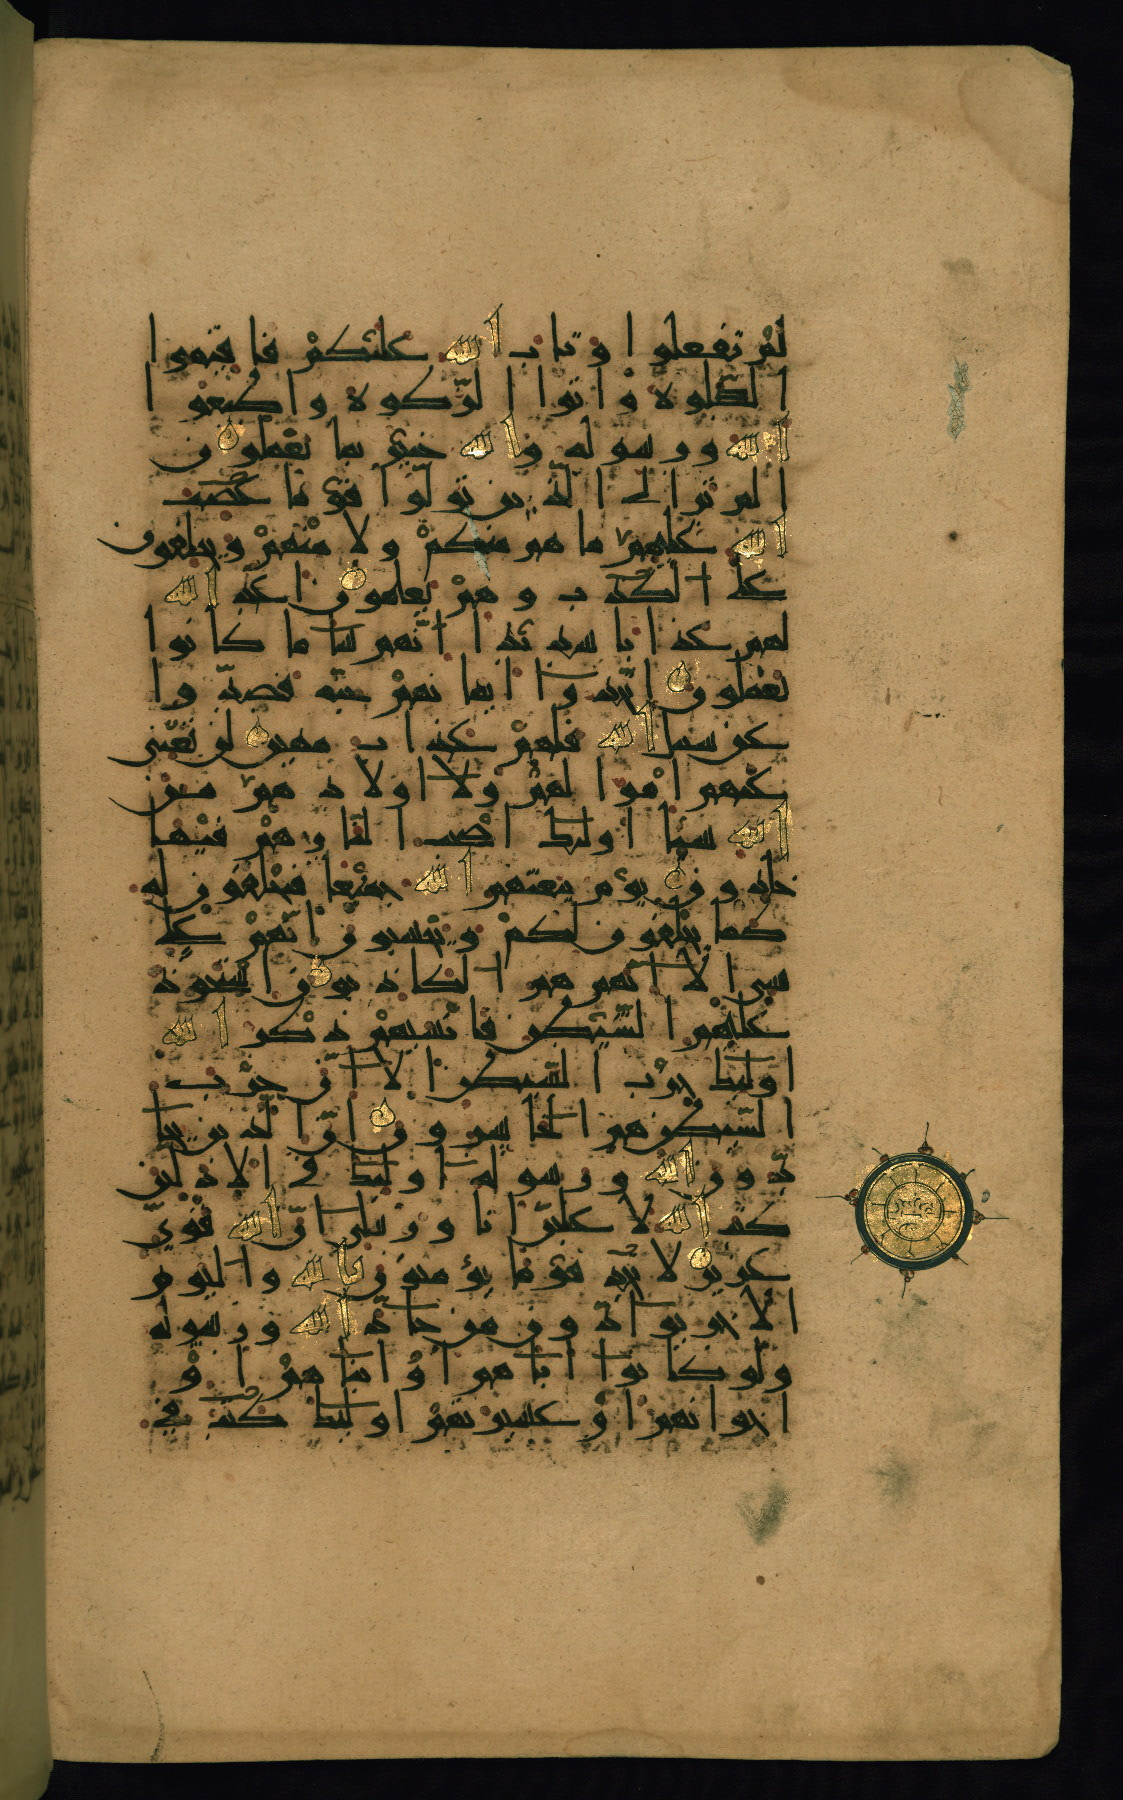 لم تفعلوا وتاب الله عليكم فاقيموا
الصلوة واتوا الزكوة واطيعوا
الله ورسوله والله خبير بما تعملون
الم تر الى الذين تولوا قوما غضب
الله عليهم ما هم منكم ولا منهم ويحلفون
على الكذب وهم يعلمون اعد الله
لهم عذابا شديدا انهم سا ما كانوا
يعملون اتخذوا ايمانهم جنة فصدوا
عن سبيل الله فلهم عذاب مهين لن تغني
عنهم اموالهم ولا اولادهم من
الله شيئا اولئك اصحب النار هم فيها
خلدون يوم يبعثهم الله جميعا فيحلفون له
كما يحلفون لكم ويحسبون انهم على
شي الا انهم هم الكاذبون استحوذ
عليهم الشيطن فانسيهم ذكر الله
اولئك حزب الشيطن الا ان حزب
الشيطن هم الخاسرون ان الذين يحا
دون الله ورسوله اولئك في الاذلين
كتب الله لاغلبن انا ورسلي ان الله قوي
عزيز لا تجد قوما يؤمنون بالله واليوم
الاخر يوادون من حاد الله ورسوله
ولو كانوا اباهم او ابناهم او
اخوانهم او عشيرتهم اولئك كتب في